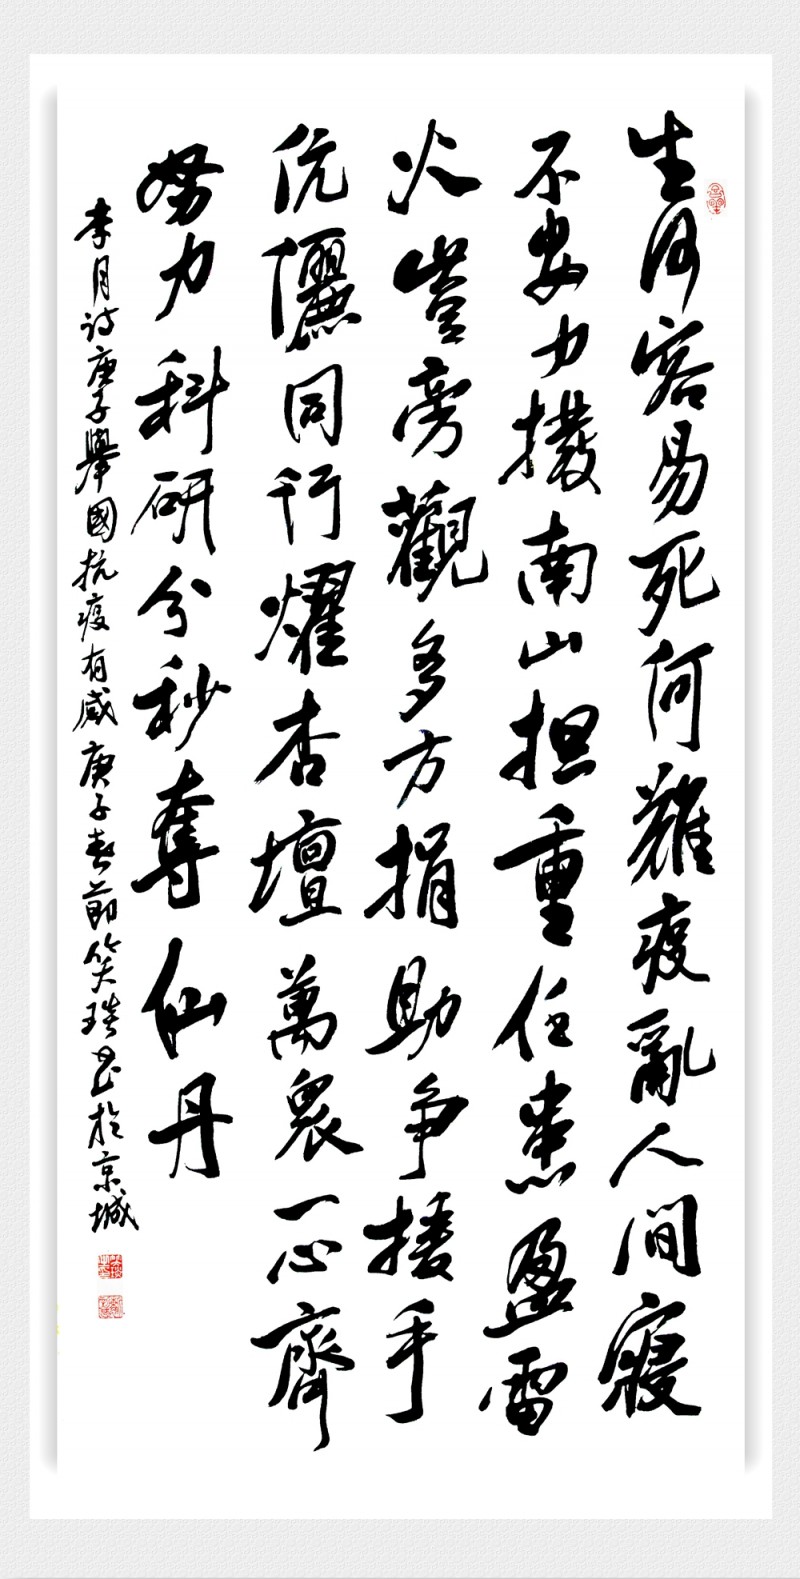 生何容易死何難疫亂人間寢
不安力撥南山担重任患盈雷
火豈旁觀多方捐助争援手
伉儷同行耀杏壇萬衆一心齊
努力科研分秒奪仙丹
李月诗庚子舉國抗疫有感庚子春節笑书於京城